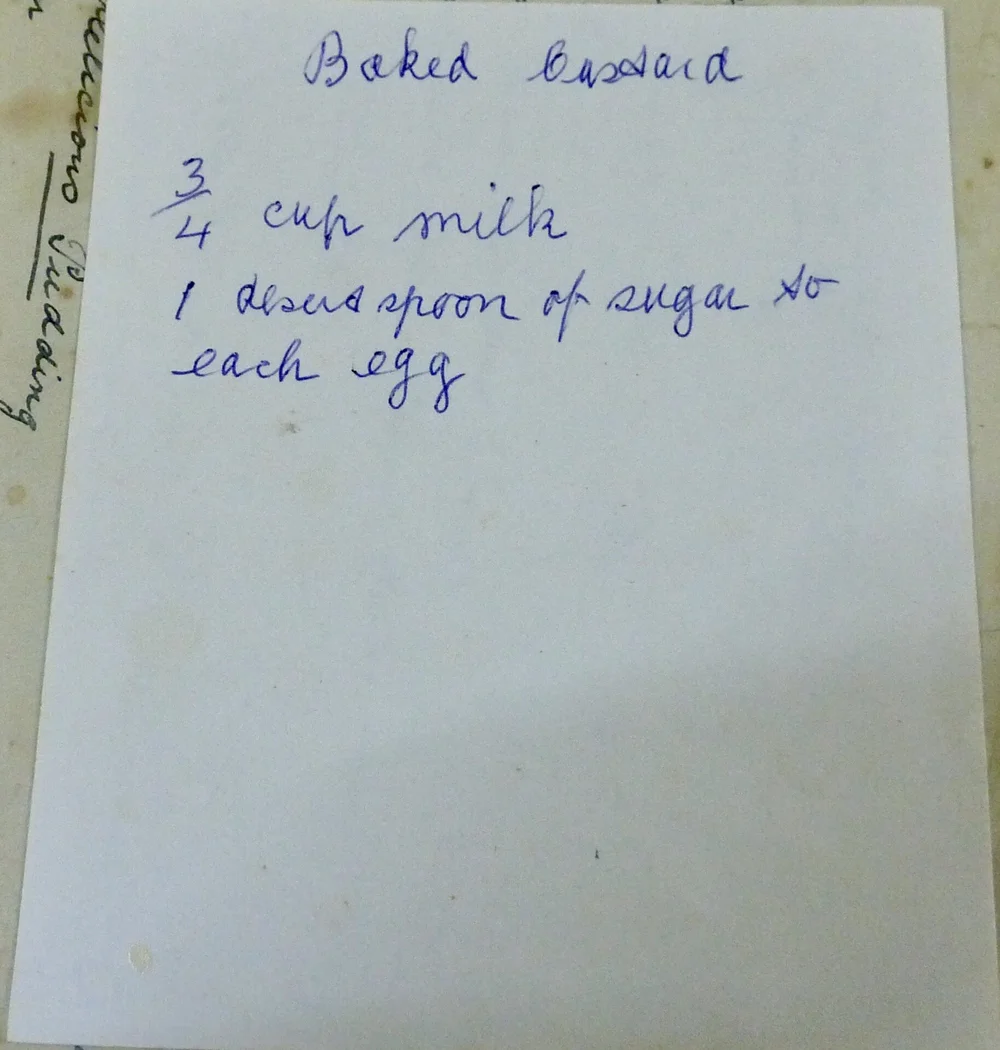 Baked Custard
3/4 cup milk
1 desert spoon of sugar to
each egg
Delicious Pudding